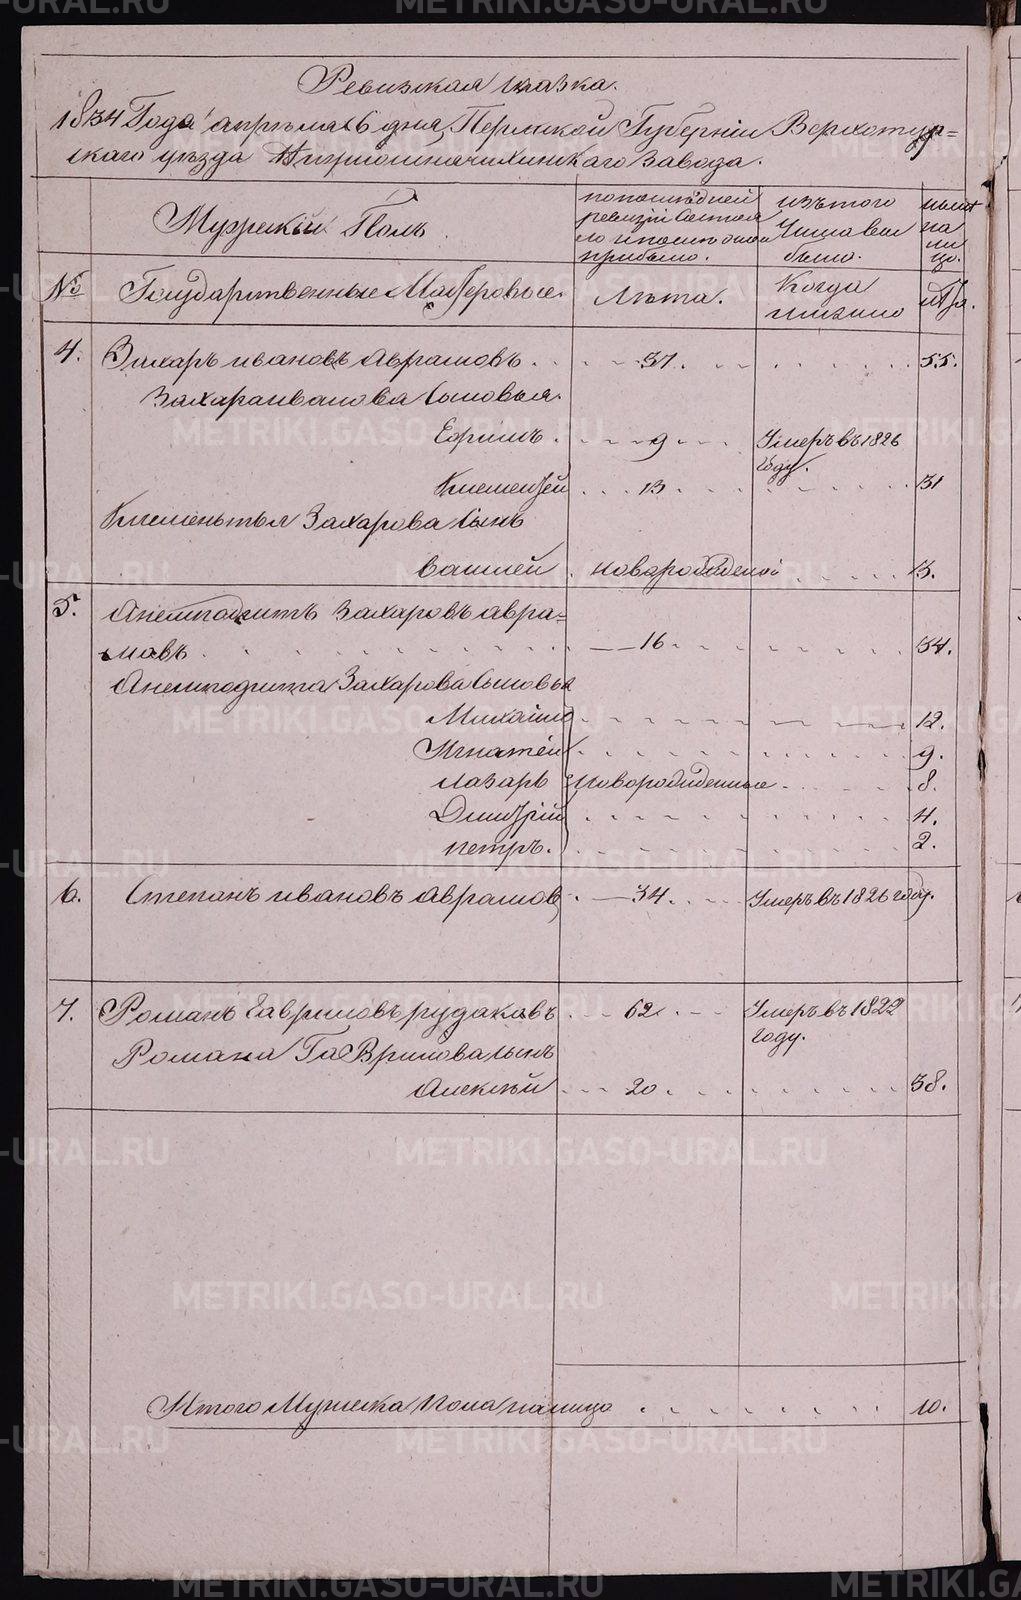 Ревизская сказка.
1834 Года апреля 6 дня, Пермской Губернiи Верхотур=
скаго уѣзда Нижнотагилскаго завода.
Мужескiй Полъ.
по последней
ревизiи состоя
ло и после оной
прибыло.
изъ того
Числа вы
было.
ныне
на
ли
цо.
№
Государственные Мастеровые.
Лѣта.
Когда
имянно
лѣта.
4. Захаръ ивановъ Аврамовъ . . . 37. . . . 55.
Захара иванова сыновья
Ефимъ. . . 9 . . Умеръ въ 1826
году.
Клементей . . 13 . . . 31
Клементья Захарова сынъ
Василей . новорожденой . . . 13.
5. Анемподистъ Захаровъ Авра=
мовъ . . . 16 . . . 34.
Анемподиста Захарова сыновья
Михайло . . . 12.
Игнатей . . . 9.
лазарь новорожденные . . . 8.
Дмитрiй . . . 4.
петръ. . . . 2.
6. Степанъ ивановъ Аврамов . — 34. . . Умеръ въ 1826 году.
7. Романъ Гавриловъ рудаковъ . — 62 . — Умеръ въ 1822
году.
Романа Гаврилова сынъ
Алексѣй . . . 20 . . . 38.
Итого Мужеска Пола налицо . . . 10.
METRIKI.GASO-URAL.RU